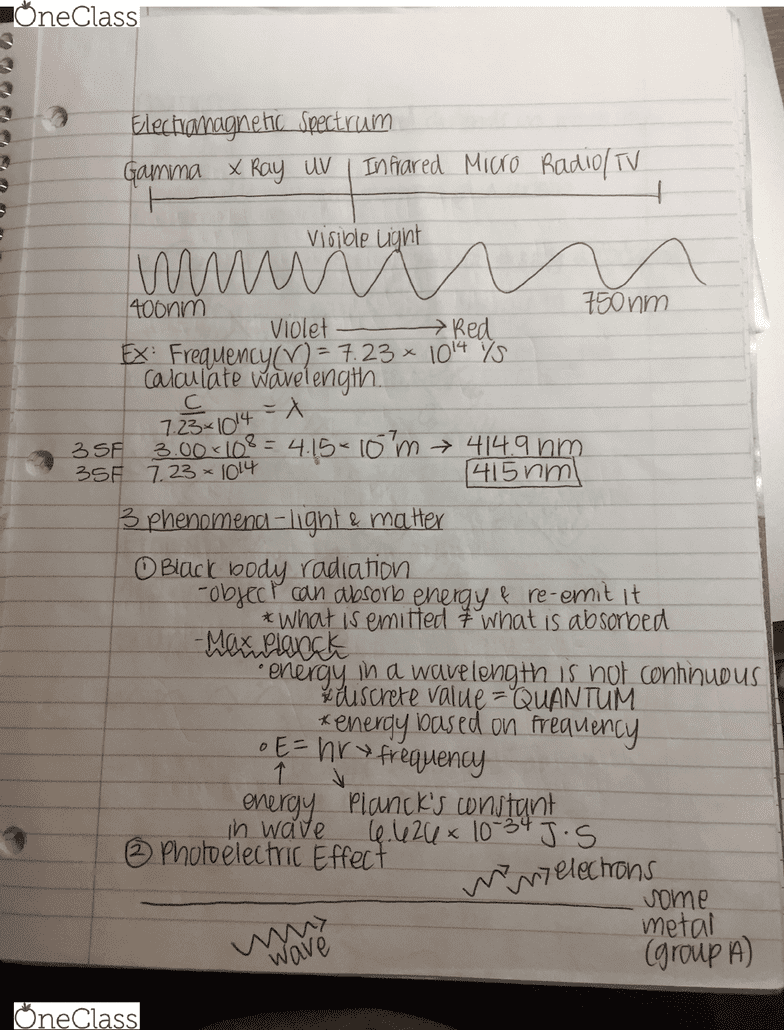 OneClass
Electromagnetic Spectrum
Gamma X Ray UV Infrared Micro Radio/TV
Visible Light
400nm 750nm
Violet → Red
Ex: Frequency(V) = 7.23 × 10¹⁴ 1/s
Calculate wavelength.
C
7.23×10¹⁴ = λ
3SF 3.00×10⁸ = 4.15× 10⁻⁷m → 414.9nm
3SF 7.23×10¹⁴ 415nm
3 phenomena-light & matter
① Black body radiation
-object can absorb energy & re-emit it
*what is emitted ≠ what is absorbed
-Max Planck
•energy in a wavelength is not continuous
*discrete value = QUANTUM
*energy based on frequency
∘E= hr→frequency
energy Planck's constant
in wave 6.626× 10⁻³⁴ J·S
② Photoelectric Effect
electrons
some
metal
(group A)
wave
OneClass